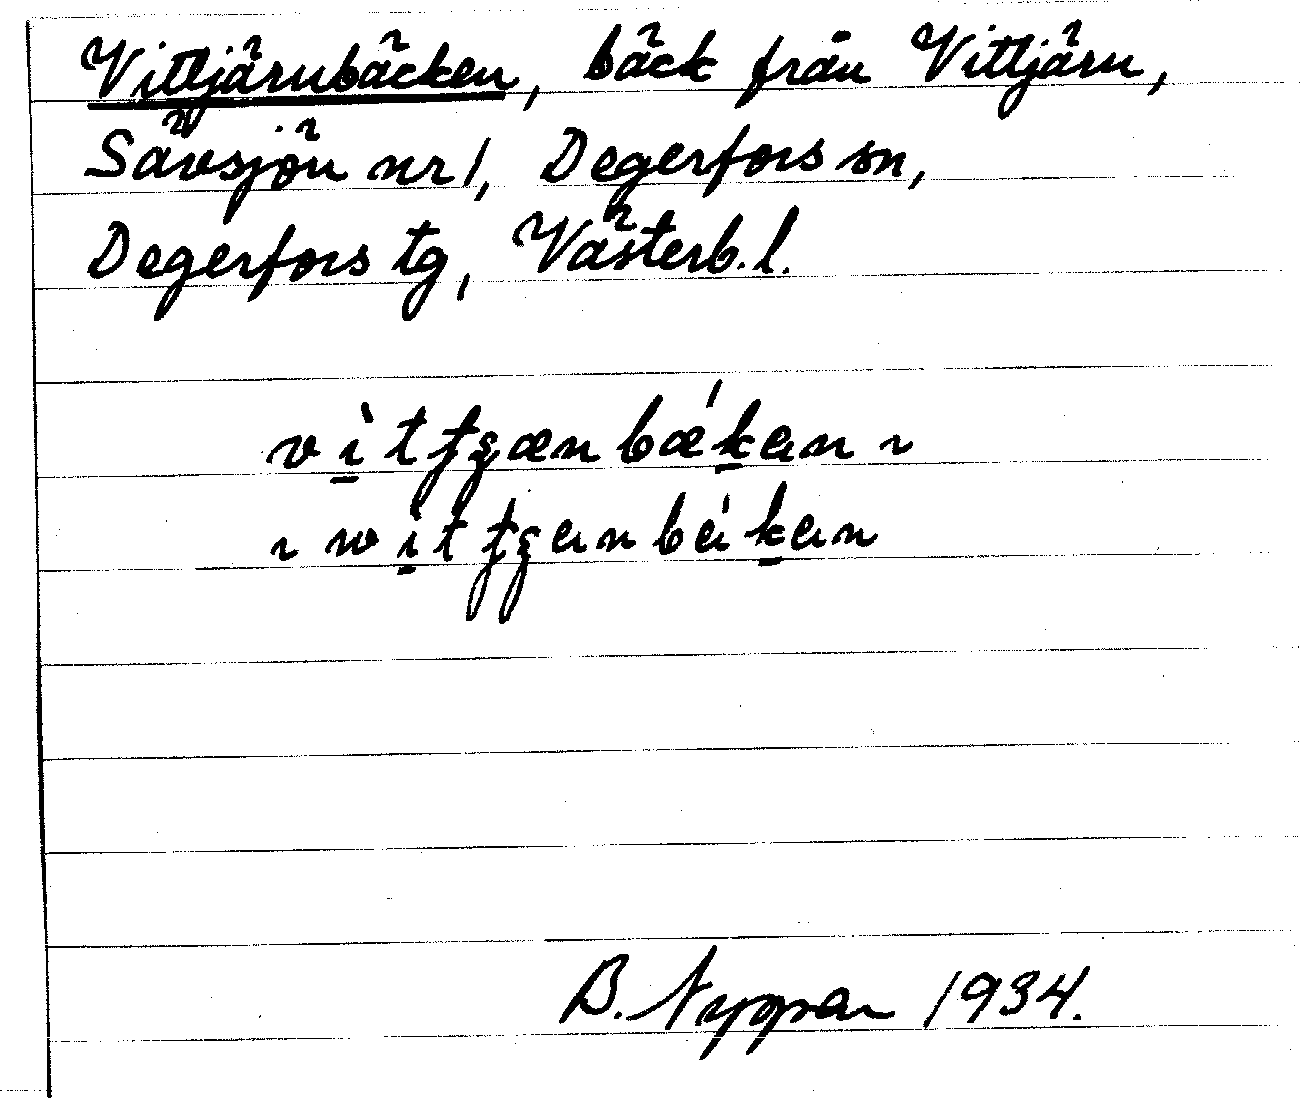 Vittjärnbäcken, bäck från Vittjärn,
Sävsjön nr 1, Degerfors sn,
Degerfors tg, Västerb. l.
B. Nygren 1934.